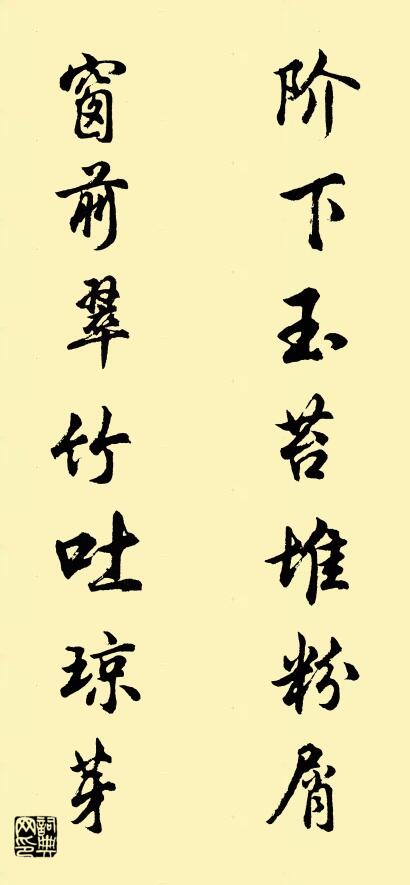 阶下玉苔堆粉屑
窗前翠竹吐琼芽
詞典网印